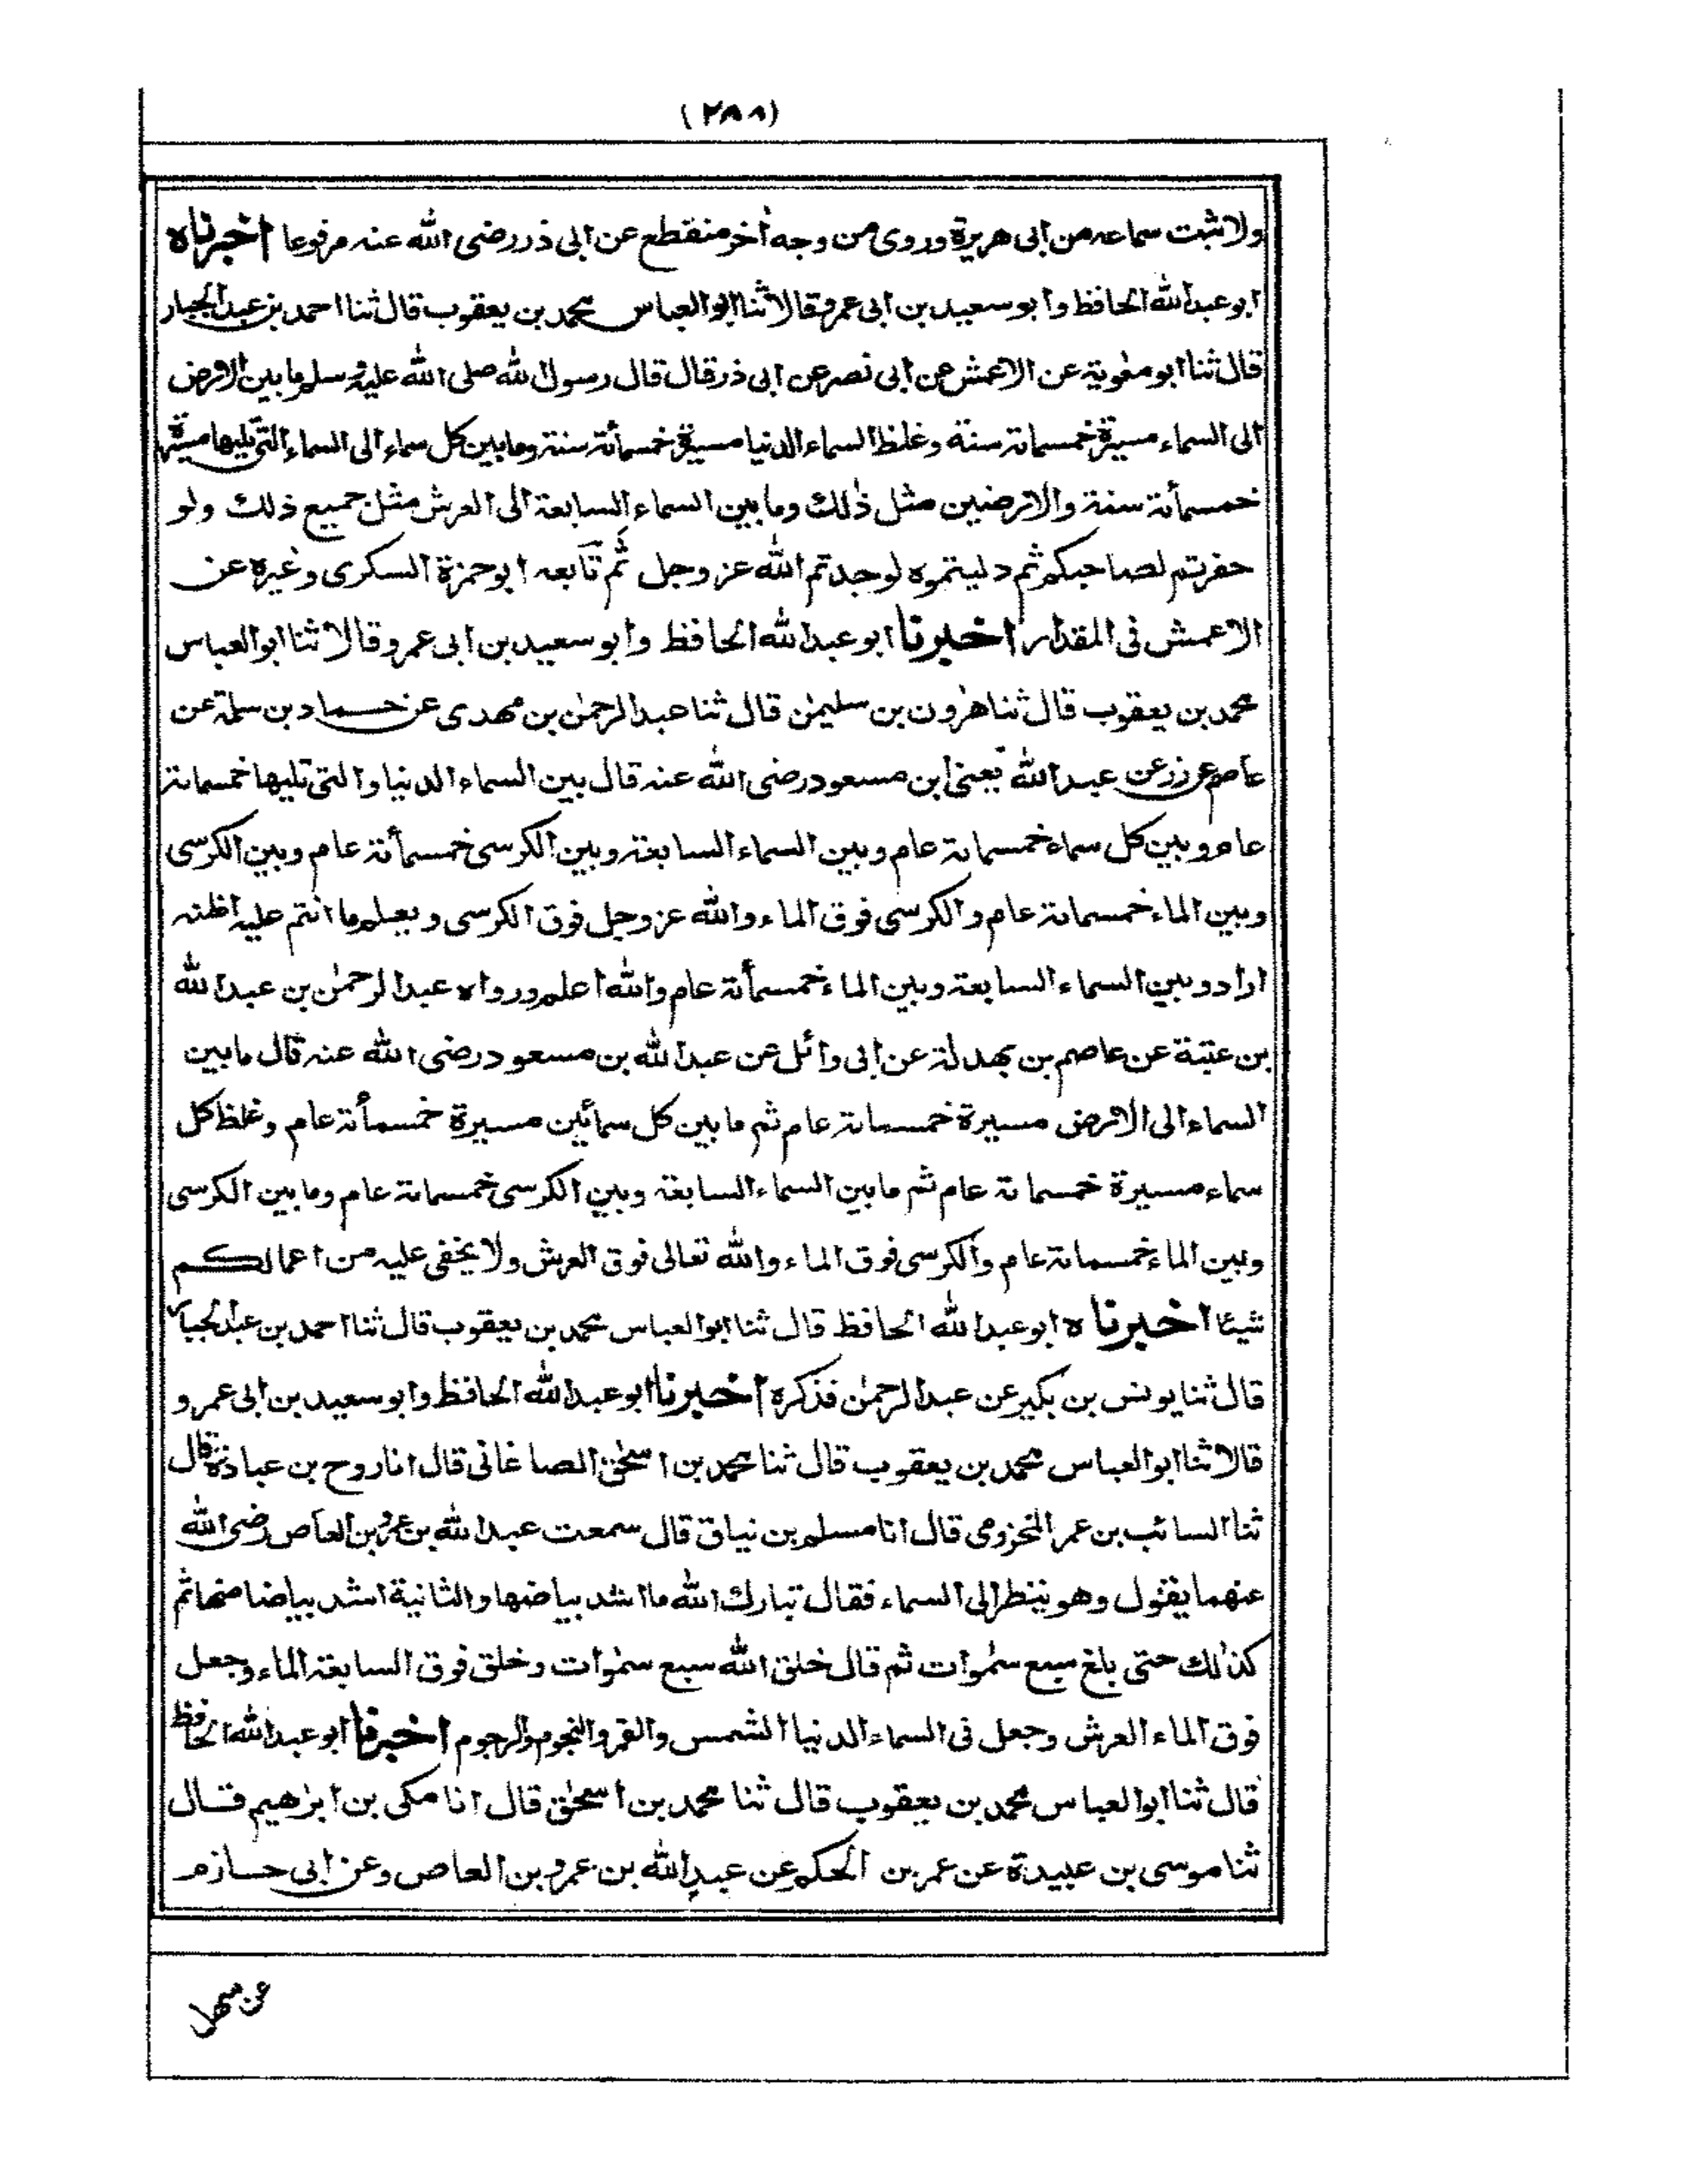 (٢٨٨)
ولا ثبت سماعه من ابى هريرة وروى من وجه اٰخر منقطع عن ابى ذر رضى الله عنه مرفوعا اخبرناه
ابو عبد الله الحافظ وابو سعيد بن ابى عمرو قالا ثنا ابو العباس محمد بن يعقوب قال ثنا احمد بن عبد الجبار
قال ثنا ابو معٰوية عن الاعمش عن ابى نصر عن ابى ذر قال قال رسول الله صلى الله عليه وسلم ما بين الارض
الى السماء مسيرة خمسمائة سنة وغلظ السماء الدنيا مسيرة خمسمأئة سنة وما بين كل سماء الى السماء التى تليها مسيرة
خمسمأئة سنة والارضين مثل ذٰلك وما بين السماء السابعة الى العرش مثل جميع ذلك ولو
حفرتم لصاحبكم ثم دليتموه لوجدتم الله عز وجل ثَم تابعه ابو حمزة السكرى وغيره عن
الاعمش فى المقدار اخبرنا ابو عبد الله الحافظ وابو سعيد بن ابى عمرو قالا ثنا ابو العباس
محمد بن يعقوب قال ثنا هٰرون بن سليمٰن قال ثنا عبد الرحمٰن بن مهدى عن حماد بن سلمة عن
عاصم عن زر عن عبد الله يعنى ابن مسعود رضى الله عنه قال بين السماء الدنيا والتى تليها خمسمائة
عام وبين كل سماء خمسمائة عام وبين السماء السابعة وبين الكرسى خمسمأئة عام وبين الكرسى
وبين الماء خمسمائة عام والكرسى فوق الماء والله عز وجل فوق الكرسى ويعلم ما انتم عليه اظنه
اراد وبين السماء السابعة وبين الماء خمسمأئة عام والله اعلم ورواه عبد الرحمٰن بن عبد الله
بن عتبة عن عاصم بن بهدلة عن ابى وائل عن عبد الله بن مسعود رضى الله عنه قال ما بين
السماء الى الارض مسيرة خمسمائة عام ثم ما بين كل سمائين مسيرة خمسمأئة عام وغلظ كل
سماء مسيرة خمسمائة عام ثم ما بين السماء السابعة وبين الكرسى خمسمائة عام وما بين الكرسى
وبين الماء خمسمائة عام والكرسى فوق الماء والله تعالى فوق العرش ولا يخفى عليه من اعمالكم
شيئا اخبرناه ابو عبد الله الحافظ قال ثنا ابو العباس محمد بن يعقوب قال ثنا احمد بن عبد الجبار
قال ثنا يونس بن بكير عن عبد الرحمٰن فذكره اخبرنا ابو عبد الله الحافظ وابو سعيد بن ابى عمرو
قالا ثنا ابو العباس محمد بن يعقوب قال ثنا محمد بن اسحٰق الصاغانى قال انا روح بن عبادة قال
ثنا السائب بن عمر المخزومى قال انا مسلم بن نياق قال سمعت عبد الله بن عمرو بن العاص رضى الله
عنهما يقول وهو ينظر الى السماء فقال تبارك الله ما اشد بياضها والثانية اشد بياضا منها ثم
كذٰلك حتى بلغ سبع سمٰوات ثم قال خلق الله سبع سمٰوات وخلق فوق السابعة الماء وجعل
فوق الماء العرش وجعل فى السماء الدنيا الشمس والقمر والنجوم والرجوم اخبرنا ابو عبد الله الحافظ
قال ثنا ابو العباس محمد بن يعقوب قال ثنا محمد بن اسحٰق قال انا مكى بن ابرٰهيم قال
ثنا موسى بن عبيدة عن عمر بن الحكم عن عبد الله بن عمرو بن العاص وعن ابى حازم
عن سهل